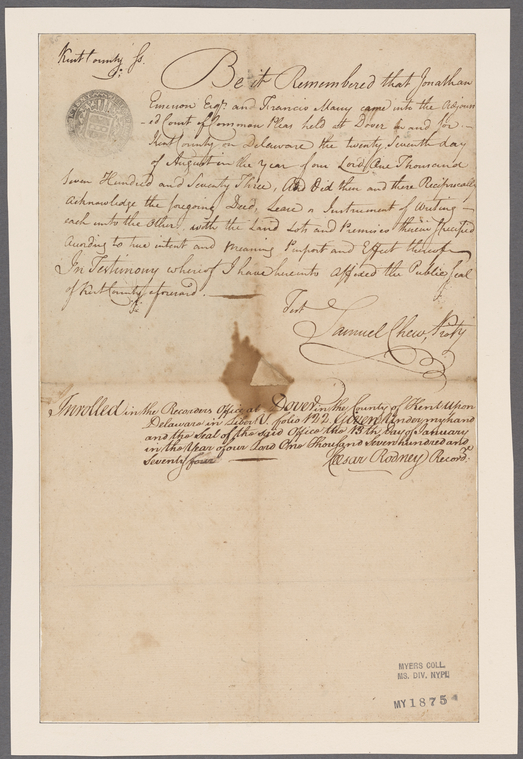 Kent County Ss.
Be it Remembered that Jonathan
Emerson Esqr and Francis Many came into the Adjourn
ed Court of Common Pleas held at Dover for
Kent County on Delaware the twenty Seventh day
of August in the year of our Lord One Thousand
Seven Hundred and Seventy Three, And Did then and there Reciprocally
Acknowledge the foregoing Deed, Lease or Instrument of Writing
each unto the Other, with the Land Lots and Premises therein Specified
According to true intent and Meaning Purport and Effect thereof
In Testimony whereof I have hereunto affixed the Public Seal
of Kent County aforesaid.
Test
Samuel Chew, Proty
Inrolled in the Recorders Office at Dover in the County of Kent Upon
Delaware in Liber U. folio 122. Given Under my hand
and the Seal of the said Office the 13th Day of January
in the Year of our Lord One Thousand Seven hundred and
Seventy four
Cæsar Rodney Recordr.
MYERS COLL.
MS. DIV. NYPL
MY 1875